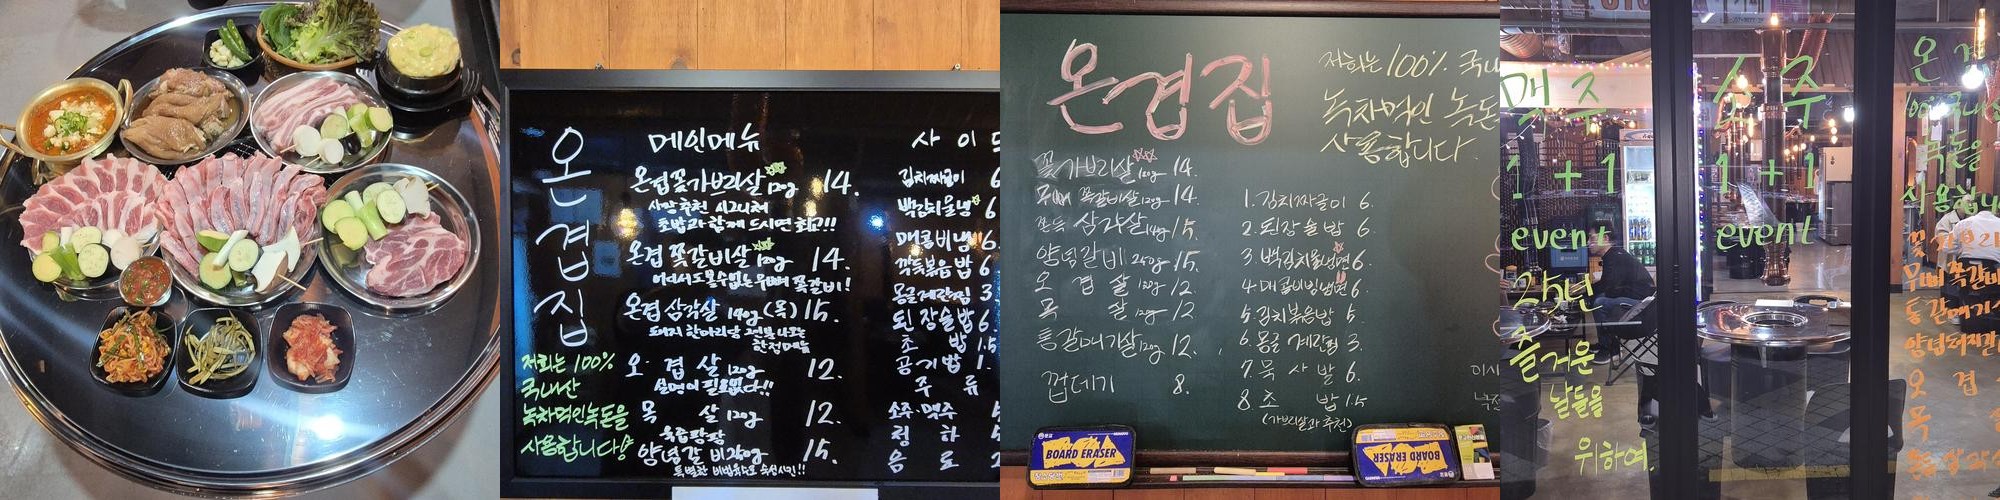 온겹집
메인메뉴
온겹꽃가브리살 120g 14.
사장추천 시그니처
초밥과 함께 드시면 최고!!!
온겹 쪽갈비살 120g 14.
어디서도 볼수없는 무뼈 쪽갈비!
온겹 삼각살 140g (목) 15.
돼지 한마리당 2인분 나오는
한정메뉴
오겹살 120g 12.
설명이 필요없다!!
목살 120g 12.
육즙팡팡
양념갈비 250g 15.
특별한 비법육수로 숙성시킨!!
저희는 100%
국내산
녹차먹인녹돈을
사용합니다
사이드
김치짜글이 6
백김치물냉 6
매콤비냉 6.
깍둑볶음밥 6
몽글계란찜 3.
된장술밥 6.
초밥 1.5
공기밥 1.
주류
소주·맥주
청하
음료 2
온겹집
저희는 100% 국내
녹차먹인 녹돈
사용합니다.
꽃가브리살 120g 14.
무뼈 쪽갈비살 120g 14.
쫀득 삼각살 140g 15.
양념갈비 250g 15.
오겹살 120g 12
목살 120g 12
통갈매기살 120g 12.
껍데기 8.
1. 김치짜글이 6.
2. 된장술밥 6.
3. 백김치물냉면 6.
4. 매콤비빔냉면 6.
5. 김치볶음밥 5.
6. 몽글계란찜 3.
7. 묵사발 6.
8. 초밥 1.5
(가브리살과 추천)
BOARD ERASER
BOARD ERASER
맥주
1+1
event
25년
즐거운
날들을
위하여.
소주
1+1
event
온겹
100% 국내산
녹돈을
사용합니
꽃가브리
무뼈쪽갈비
통갈매기
양념돼지갈
오겹
목살